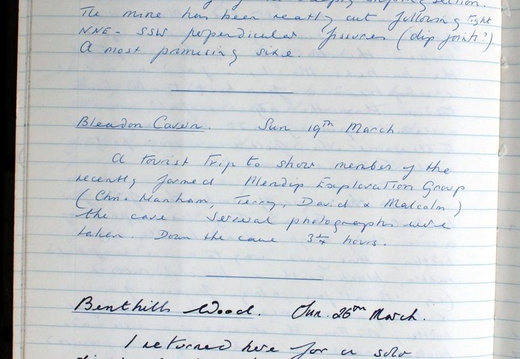 The mine has been neatly cut following tight
NNE - SSW perpendicular fissures (dip joints?)
A most promising site.
Bleadon Cavern. Sun 19th March
A tourist trip to show member of the
recently formed Mendip Exploration Group
(Chris Hanham, Terry, David & Malcolm)
the cave Several photographs were
taken. Down the cave 3 hours.
Benthills Wood. Sun. 26th March.
I returned here for a solo